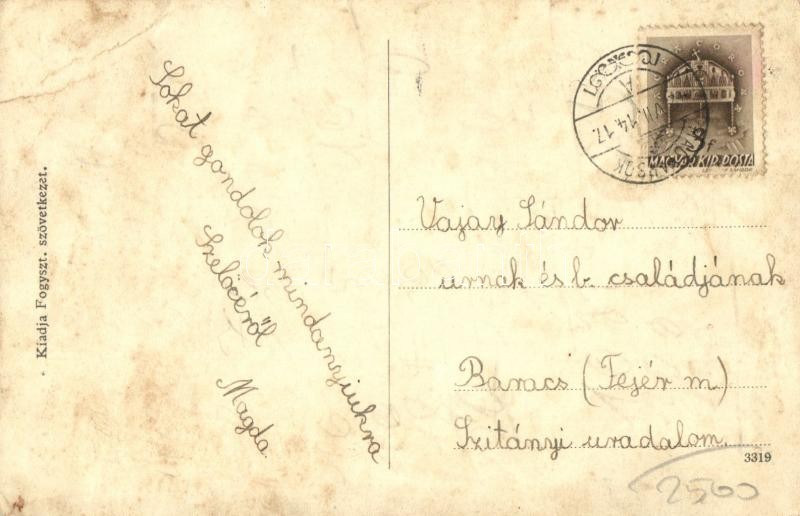 Kiadja Fogyszt. szövetkezet.
Sokat gondolok mindanyiukra
Szelőcéről
Magda
MAGYAR KIR. POSTA
14. 17.
A
Vajay Sándor
urnak és b. családjának
Baracs (Fejér m)
Szitányi uradalom.
3319
2500